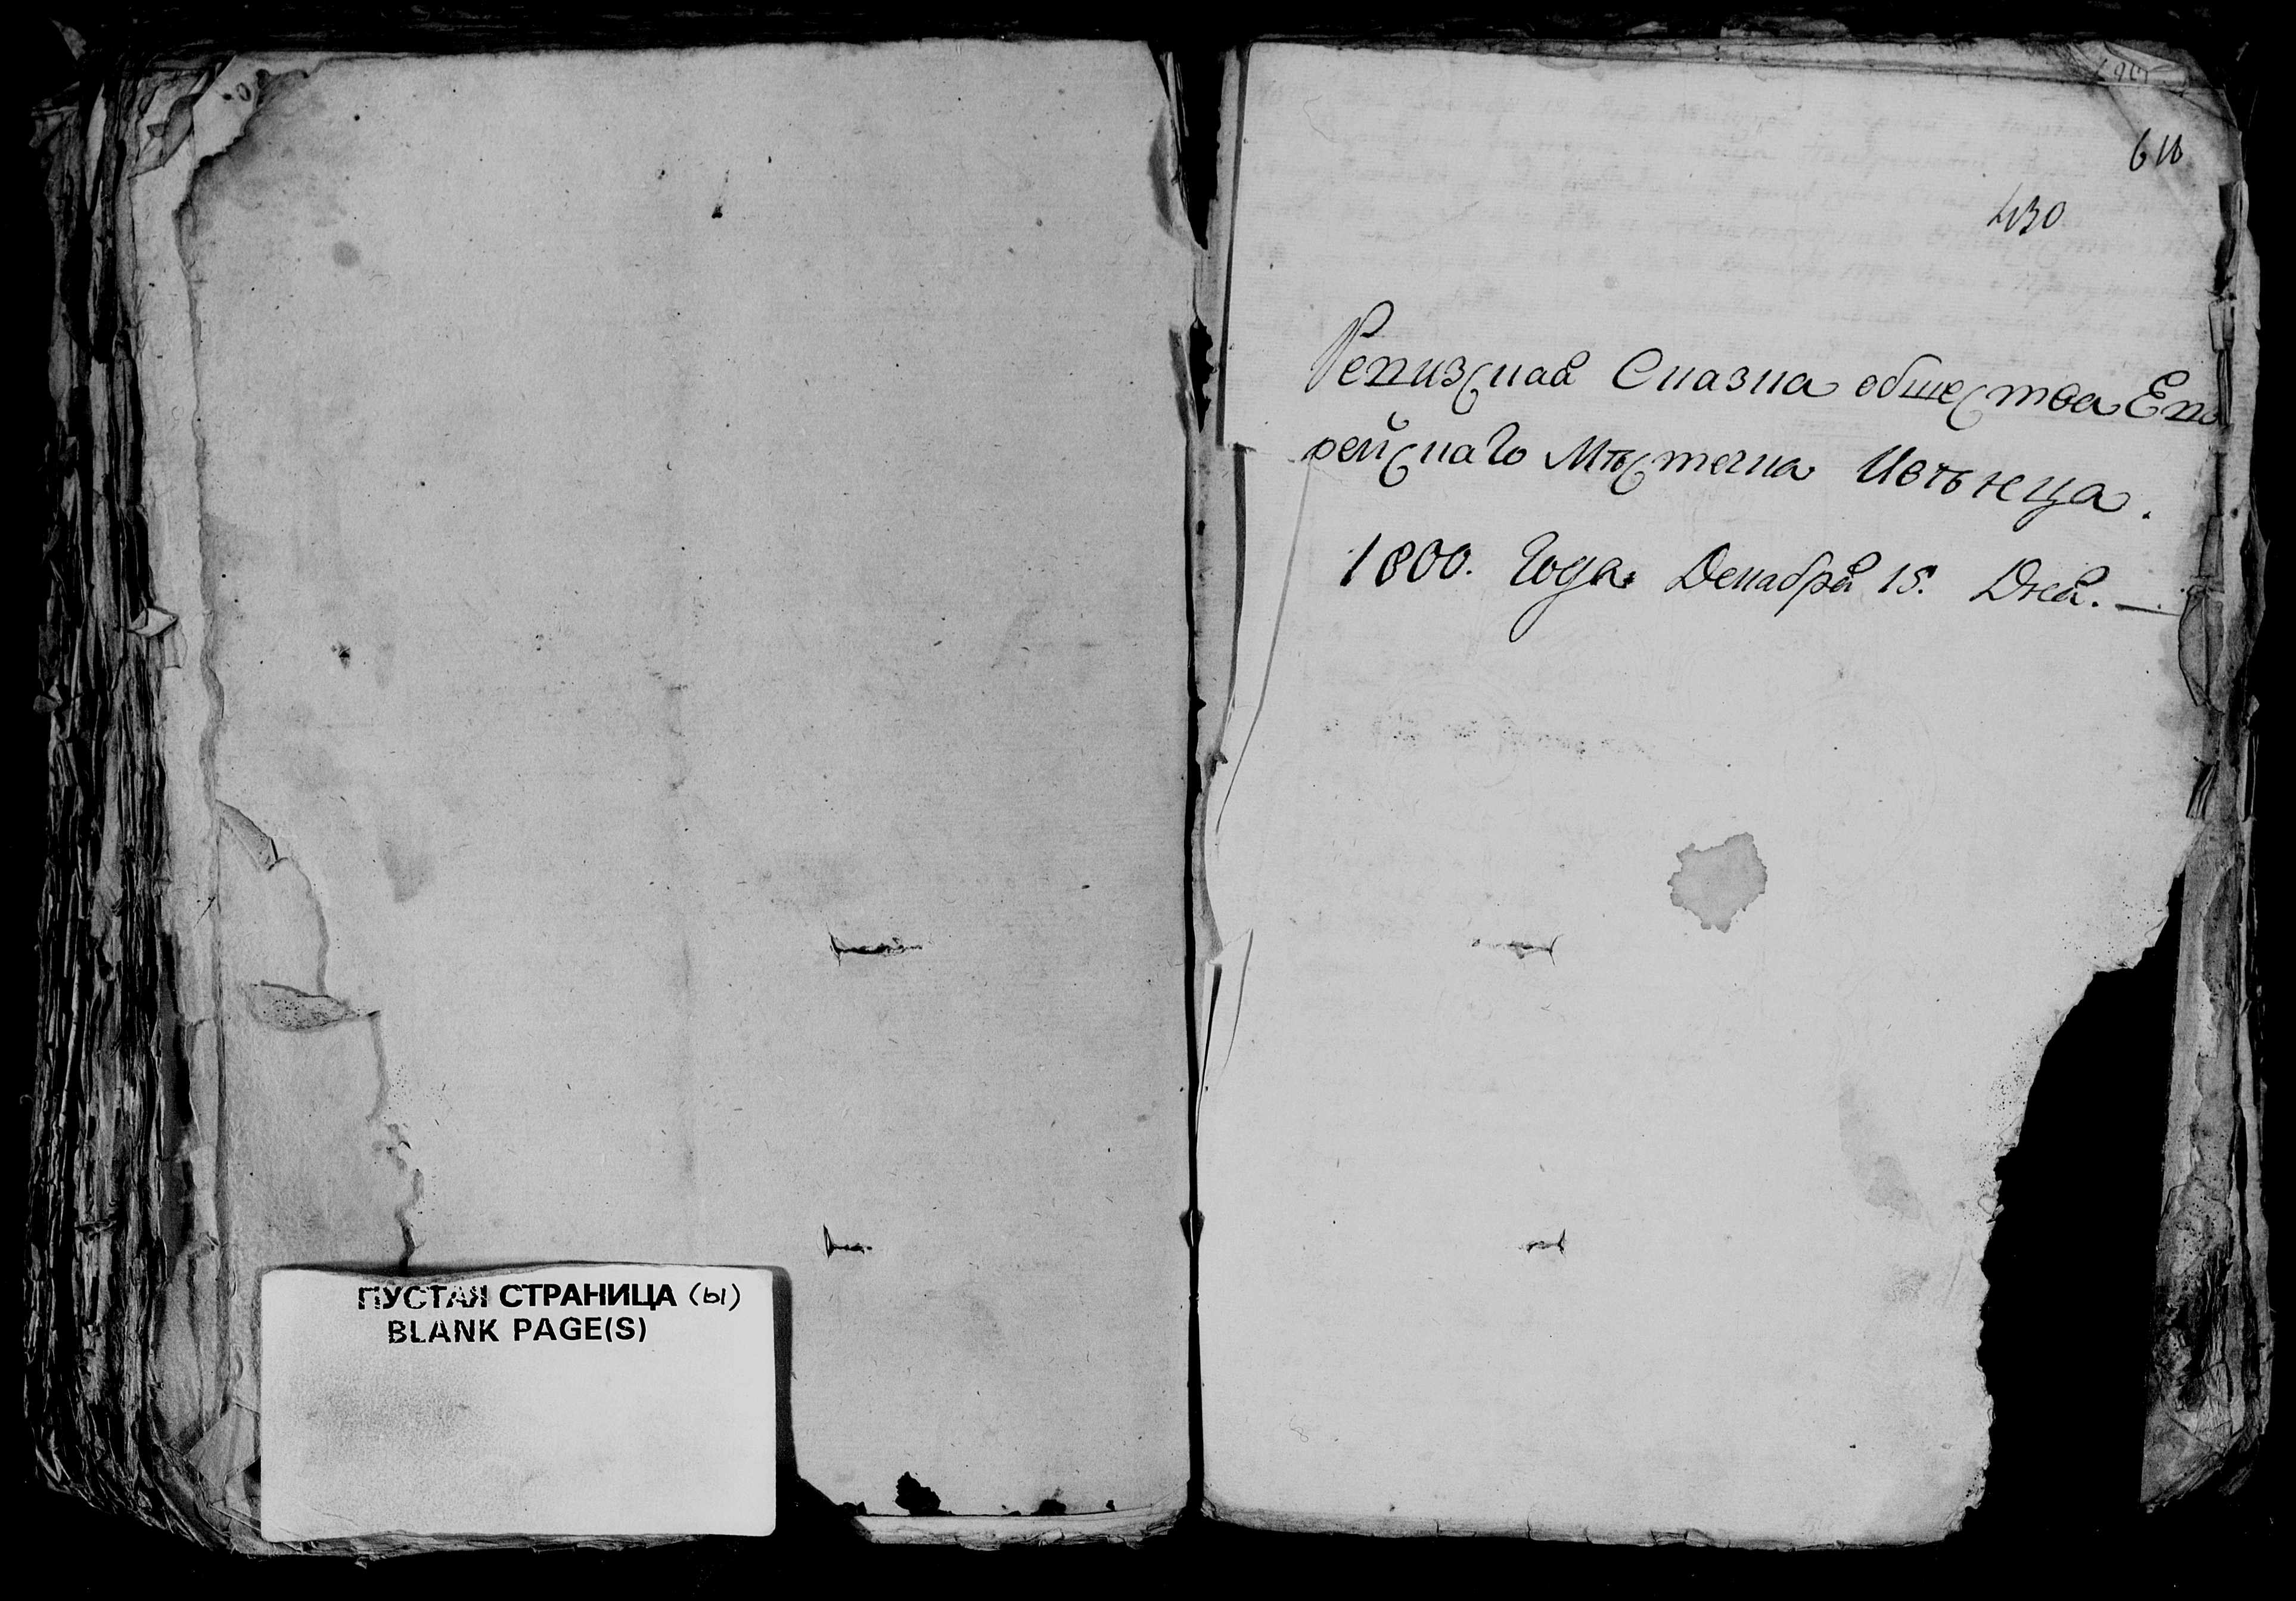 ПУСТАЯ СТРАНИЦА (ы)
BLANK PAGE(S)
430
Ревизская Сказка общества Ев
рейскаго Мѣстечка Ивѣнца.
1800. Года. Декабря 15. Дня. —